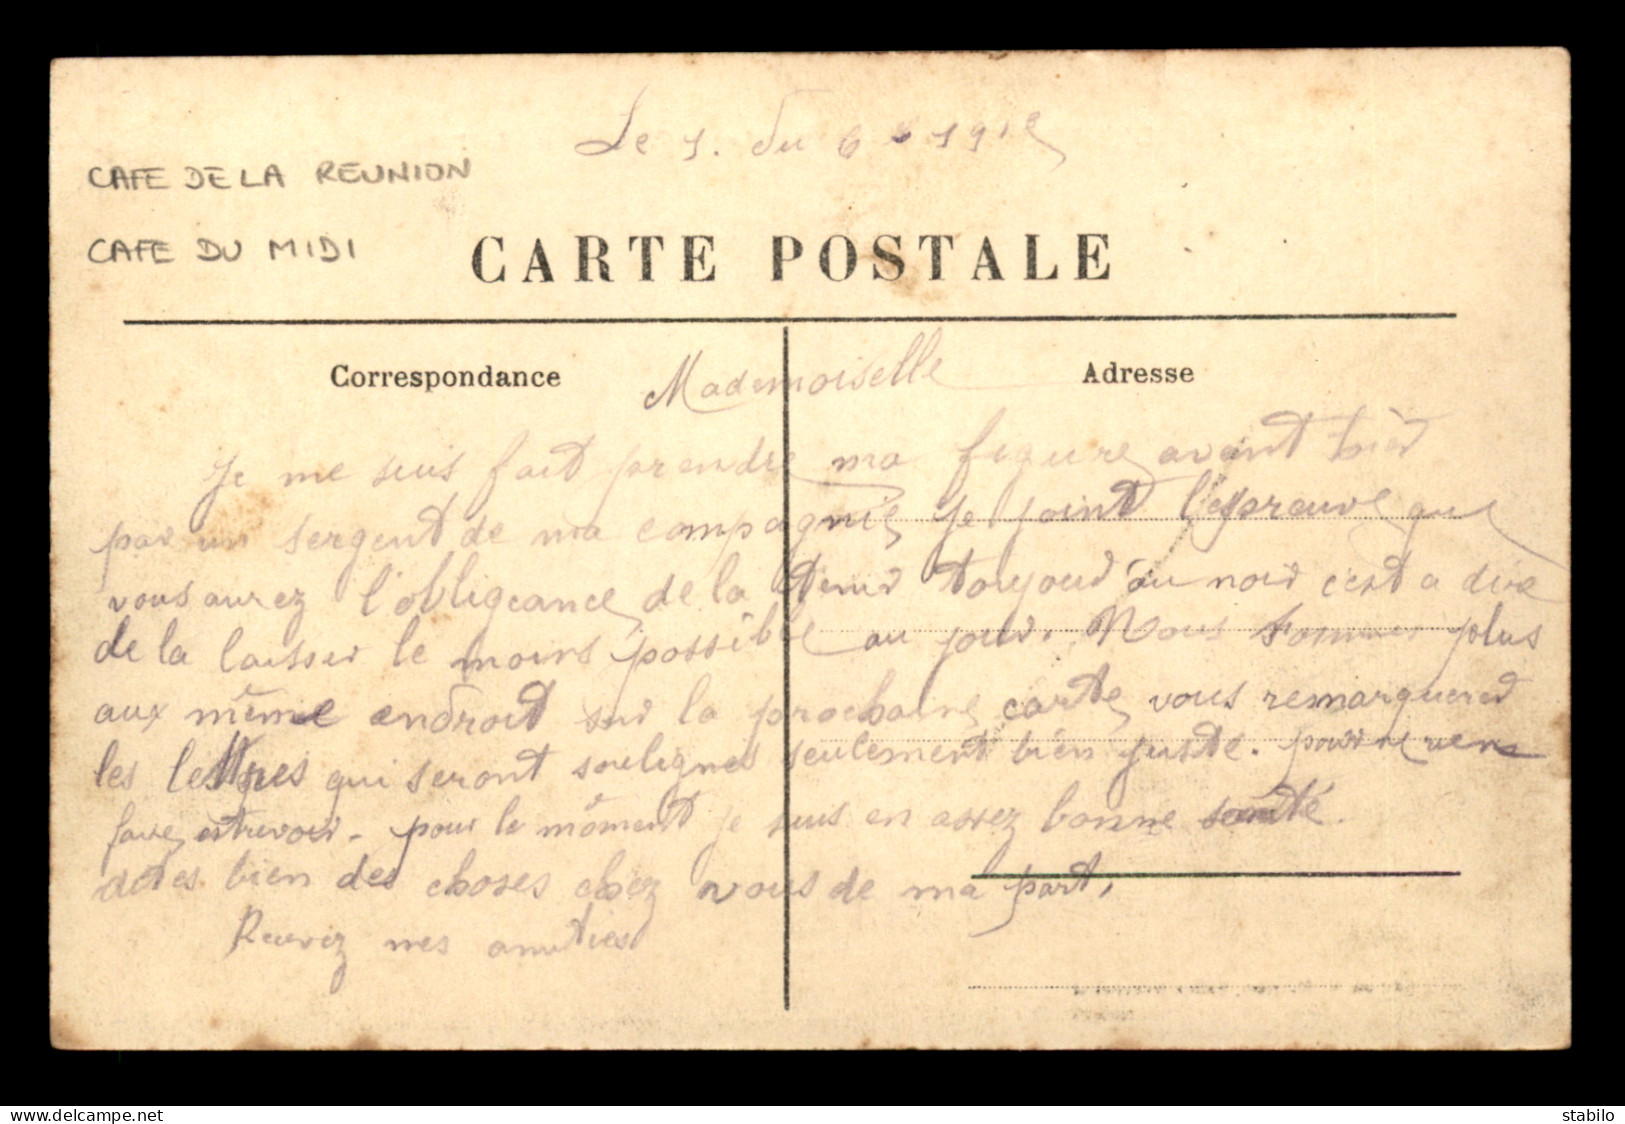 Le 1. du 6 191
CAFE DE LA REUNION
CAFE DU MIDI
CARTE POSTALE
Correspondance
Adresse
Mademoiselle
Je me suis fait prendre ma figure avant hier
par un sergent de ma compagnie je joint l'espreuve que
vous aurez l'obligeance de la tenir toujour au noir c'est a dire
de la laisser le moins possible au jour. Nous sommes plus
aux même endroit sur la prochaine carte vous remarquered
les lettres qui seront soulignes seulement bien juste. pour ne rien
faire entrevoir. pour le moment je suis en assez bonne santé.
dites bien des choses chez vous de ma part.
Recevez mes amities
www.delcampe.net
stabilo